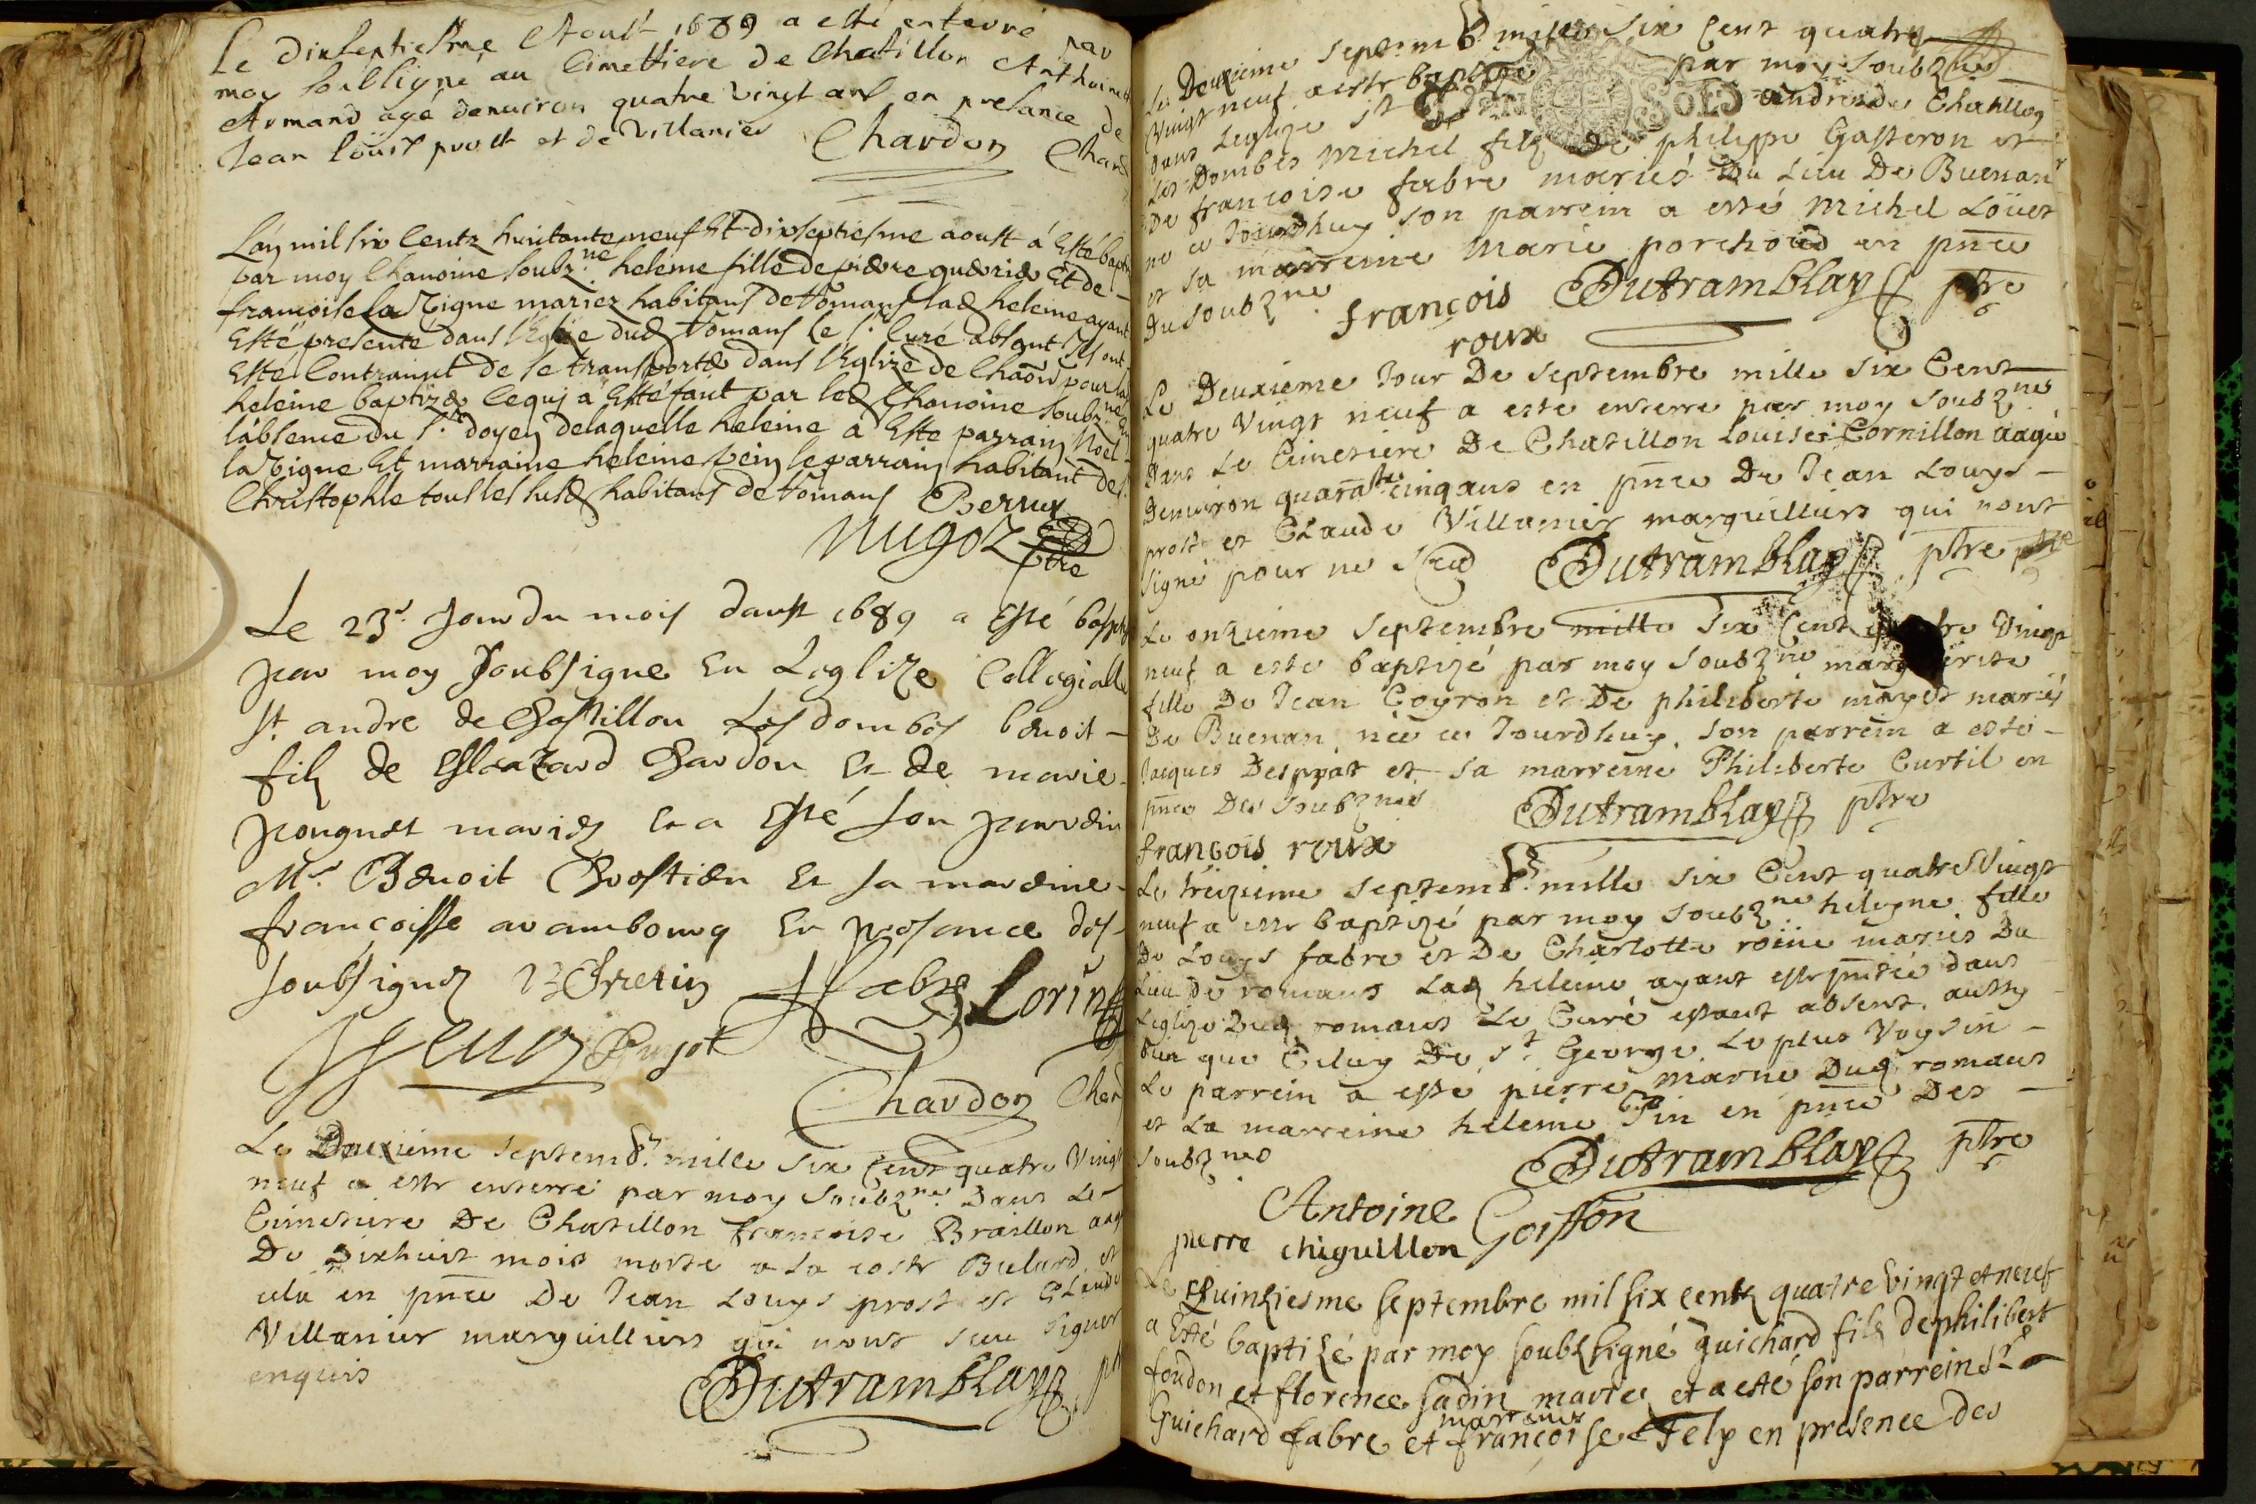 Le dixseptiesme Aoust 1689 a esté enterré par
moy soubsigné au Cimettiere de Chatillon Anthoinet
Armand agé denuiron quatre vingt ans en presance de
Jean louis prost et de Villanier Chardon Chard
Lan mil six Centz huictante neuf Et dixseptiesme aoust à Esté bapt
par moy Chanoine soubz.ne heleine fille de piere guerin Et de
francoise la Vigne mariez habitans de Romans lad heleine ayant
Esté presente dans l'Eglize dud Romans le Sr. Curé absent Ils ont
Esté Contraint de se transporter dans l'Eglize de Chaōn pour lad
heleine baptizer Cequi a Esté fait par led Chanoine soubz.ne En
l'absence du Sr. doyen delaquelle heleine à Esté parrain Noel
la Vigne Et marraine heleine pein le parrain habitant de St.
Christophle tous les susd habitans de Romans Berruy
Nugoz ptre
Le 23e Jour du mois daust 1689 a Esté bapt
par moy Soubsigne En Leglize Collegialle
st. andre de Chastillon Les dombes benoit
filz de Eleazard Chardon Et de marie
pouguet mariez Et a Esté son parrein
Mr. Benoit Chrostien Et sa mareine
francoisse arambourg En presance des
soubsignez B Chretien Fabre Lorin
Pugot
Chardon Char
Le Deuxieme septembr. mille six Cent quatre Vingt
neuf a este enterré par moy soubz.ne Dans Le
Cimetiere De Chatillon francoise Braillon aag
De dixhuit mois morte a la coste Bulard et
cela en pnce De Jean Louys prost et Claude
Villanier marguilliers qui nont sceu signer
enquis
Dutramblay pt
Le Deuxieme septembr. mille six Cent quatre
Vingt neuf a este baptizé par moy soubzne
dans Leglize st andre de Chatillon
Les Dombes Michel filz De philippe Gasteron et
De francoise fabre mariés Du Lieu De Buenan
ne ce Jourdhuy son parrein a esté Michel Louet
et sa marreine Marie porchoud en pnce
Du soubzne.
francois roux Dutramblay ptre
Le Deuxieme Jour De septembre mille six Cent
quatre Vingt neuf a este enterre par moy soubznes
Dans Le Cimetiere De Chatillon Louise Cornillon aagée
Denuiron quarante cinq ans en pnce De Jean Louys
prost et Claude Villanier marguilliers qui nont
signé pour ne Scav Dutramblay ptre
Le onzieme septembre mille six Cent quatre Vingt
neuf a este baptizé par moy soubzne marguerite
fille De Jean Goyron et De philiberte mayet mariés
De Buenan née ce Jourdhuy son parrein a esté
Jacques Desprat et sa marreine Philiberte Curtil en
pnce Des soubznés
francois roux Dutramblay ptre
Le treizieme septembr. mille six Cent quatre Vingt
neuf a este baptizé par moy soubzne heleyne fille
De Louys fabre et De Charlotte roüe mariés Du
Lieu de romans Lad heleine ayant esté pntée dans
Leglize Dud romans Le Curé estant absent, aussy
bien que Celuy De St George Le plus Voysin
Le parrein a esté pierre Marne Dud romans
et La marreine heleine Pin en pnce Des
soubznés Dutramblay ptre
Antoine Goiffon
pierre chiguillon
Le Quinziesme septembre mil six centz quatre vingt et neuf
a Esté baptizé par moy soubzsigné guichard filz de philibert
foudon et florence sadin mariez et a esté son parrein Sr
Guichard fabre et marreine francoise Felp en presence des